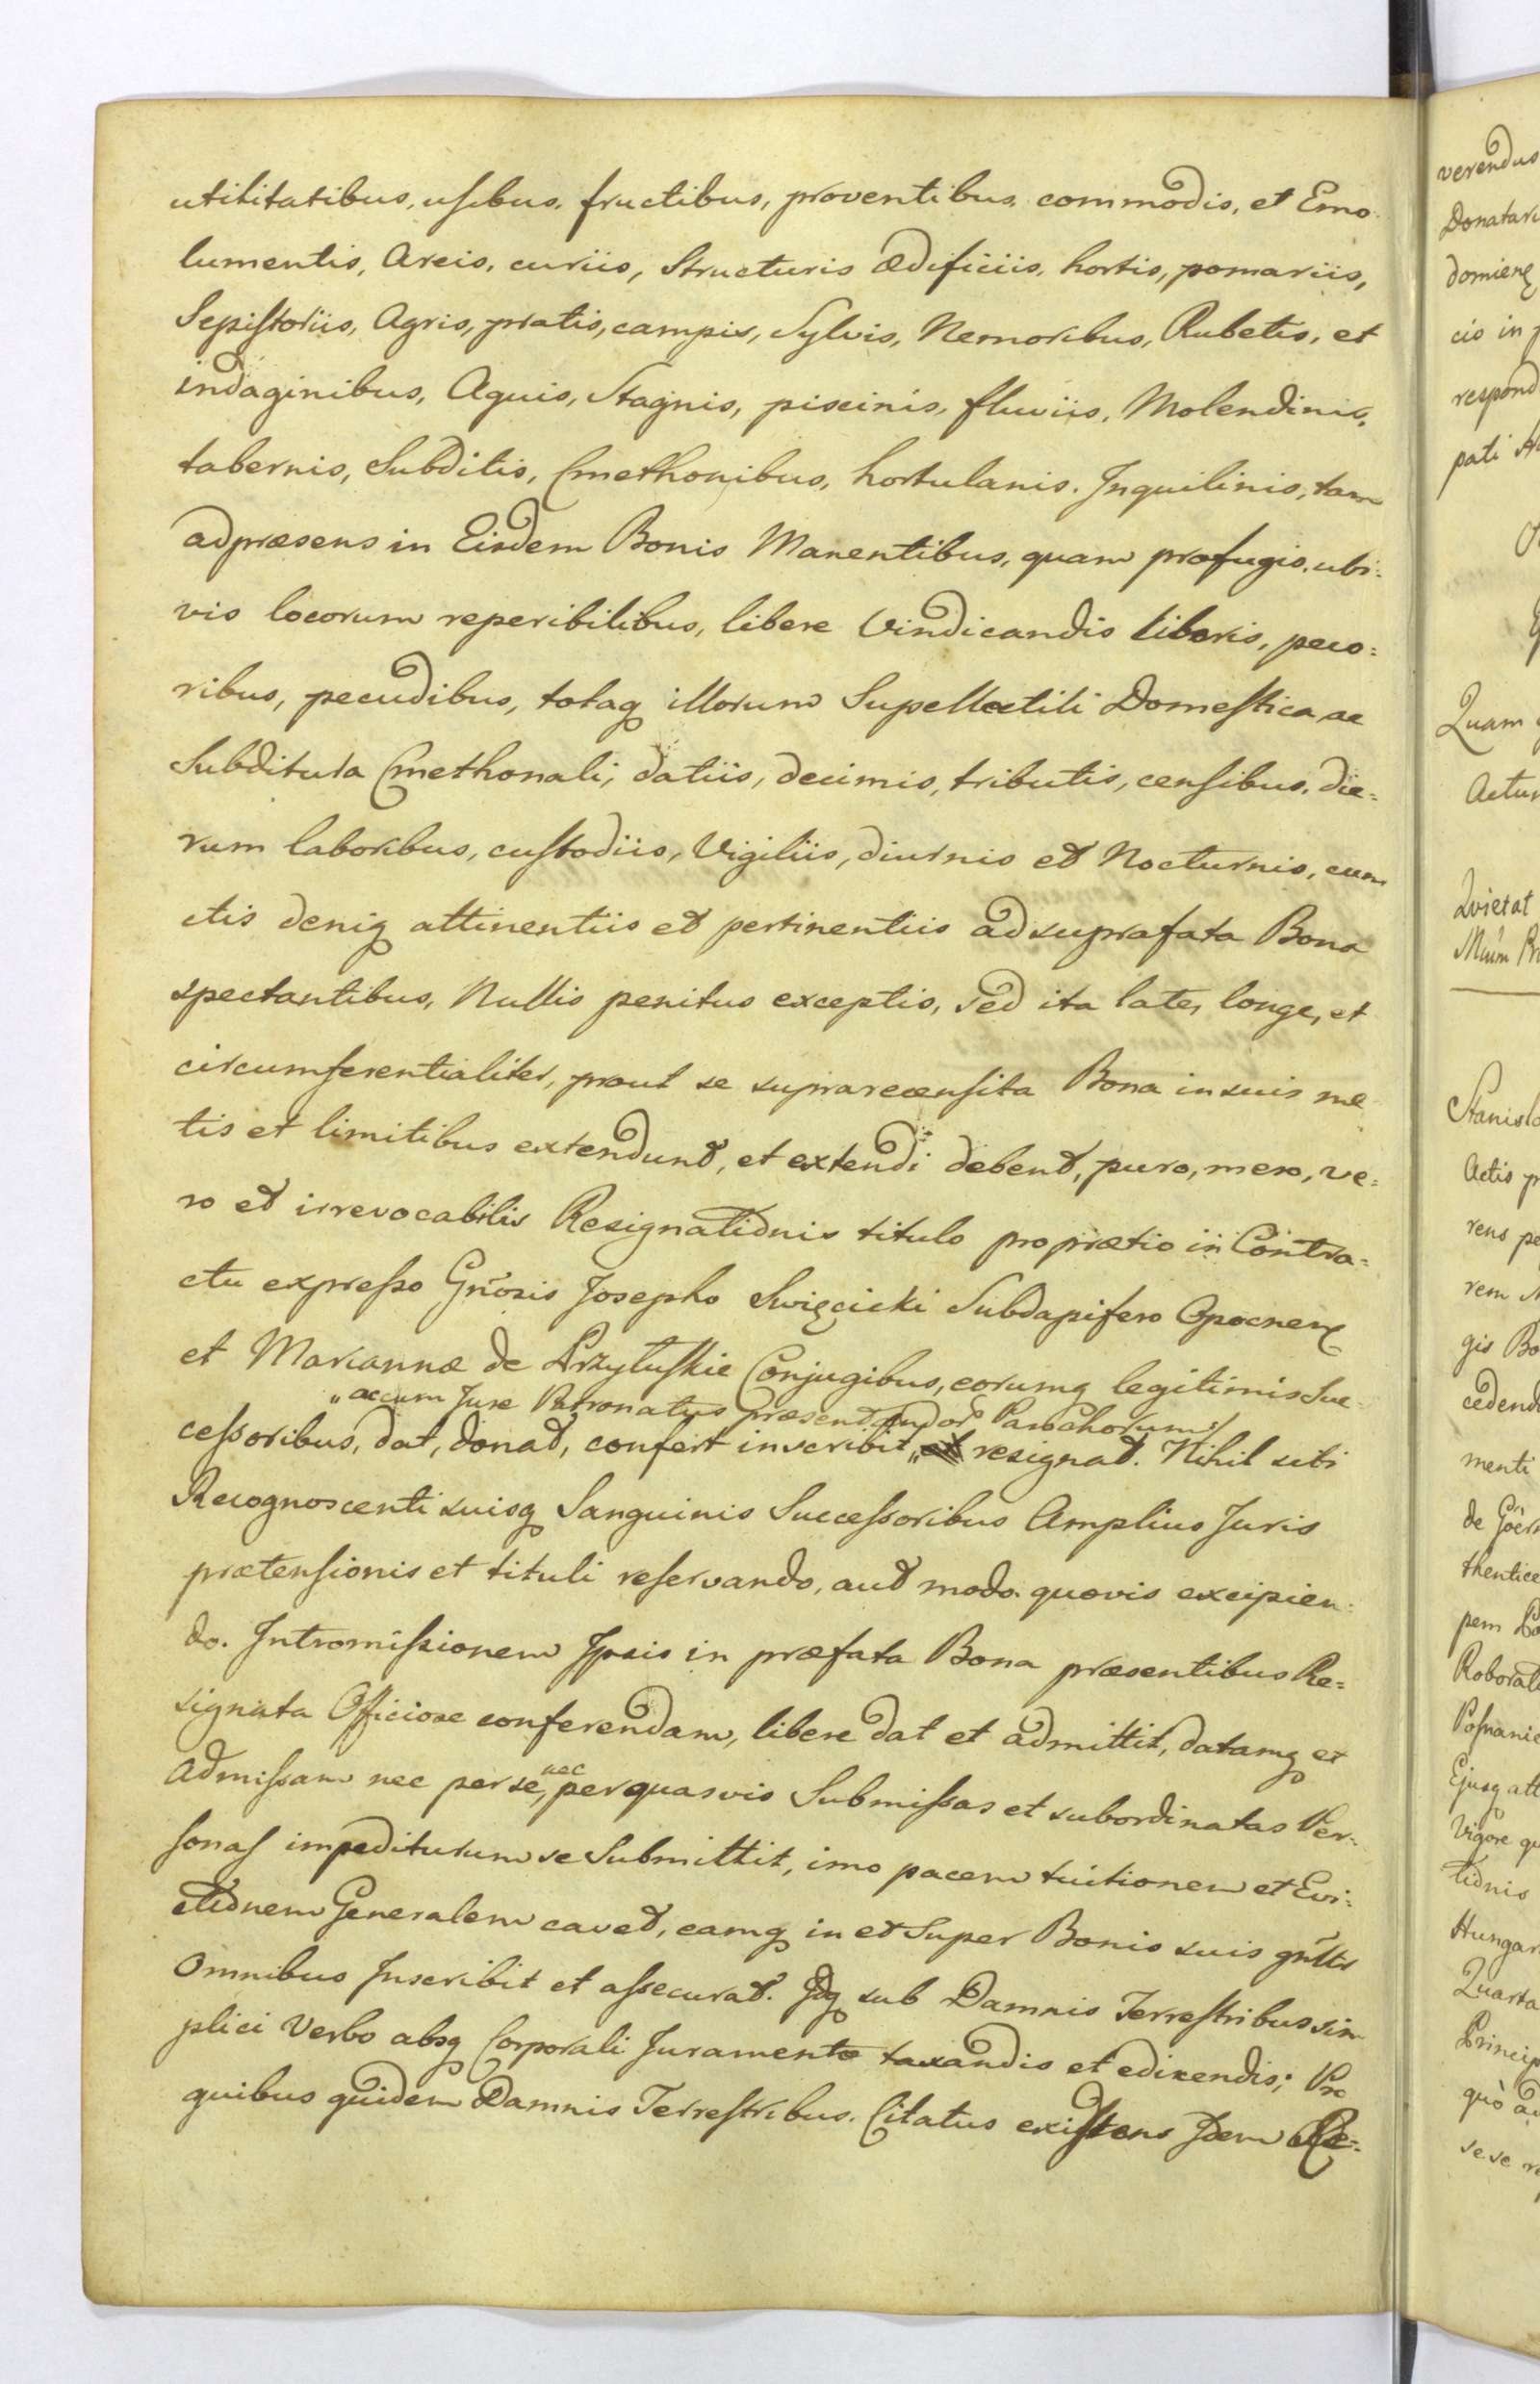 utilitatibus, usibus, fructibus, proventibus, commodis, et Emo
lumentis, Areis, curiis, Structuris Ædificiis, hortis, pomariis,
Sepistoriis, Agris, pratis, campis, Sylvis, Nemoribus, Rubetis, et
indaginibus, Aquis, Stagnis, piscinis, fluviis, Molendinis,
tabernis, Subditis, Cmethonibus, hortulanis, Inquilinis, tam
ad præsens in Eisdem Bonis Manentibus, quam profugis, ubi-
vis locorum reperibilibus, libere Vindicandis liberis, peco=
ribus, pecudibus, totaq illorum Supellectili Domestica ac
Subditura Cmethonali, datiis, decimis, tributis, censibus, die=
rum laboribus, custodiis, Vigiliis, diurnis et Nocturnis, cun
ctis deniq attinentiis et pertinentiis ad suprafata Bona
spectantibus, Nullis penitus exceptis, sed ita late, longe, et
circumferentialiter, prout se suprarecensita Bona in suis me
tis et limitibus extendunt, et extendi debent, puro, mero, ve=
ro et irrevocabilis Resignationis titulo pro prætio in Contra=
ctu expresso Gnosis Josepho Swięcicki Subdapifero Opocnen
et Mariannæ de Przyłuskie Conjugibus, eorumq legitimis Suc
"ac cum Jure Patronatus præsentandor Parochorum
cessoribus, dat, donat, confert inscribit, et resignat. Nihil sibi
Recognoscenti suisq Sanguinis Successoribus Amplius Juris
prætensionis et tituli reservando, aut modo quovis excipien-
do. Intromissionem Ipsis in præfata Bona præsentibus Re=
signata Officiose conferendam, libere dat et admittit, datamq et
admissam nec per se, nec per quasvis Submissas et subordinatas Per-
sonas impediturum se Submittit, imo pacem tuitionem et Evi-
ctionem Generalem cavet, eamq in et Super Bonis suis gnltr
Omnibus Inscribit et assecurat. Idq sub Damnis Terrestribus sim
plici Verbo absq Corporali Juramento taxandis et edicendis; Pro
quibus quidem Damnis Terrestribus. Citatus existens Idem Re=
verendus
Donatari
domien
cis in
respond
pati
Quam
Actum
Quietat
Stanisla
Actis
rens
rem
gis Bo
cedend
menti
thentice
pem
Roborat
Posnanie
Ejusq att
Vigore qu
tionis
Hungar
Quarta
Princip
quò ad
sese